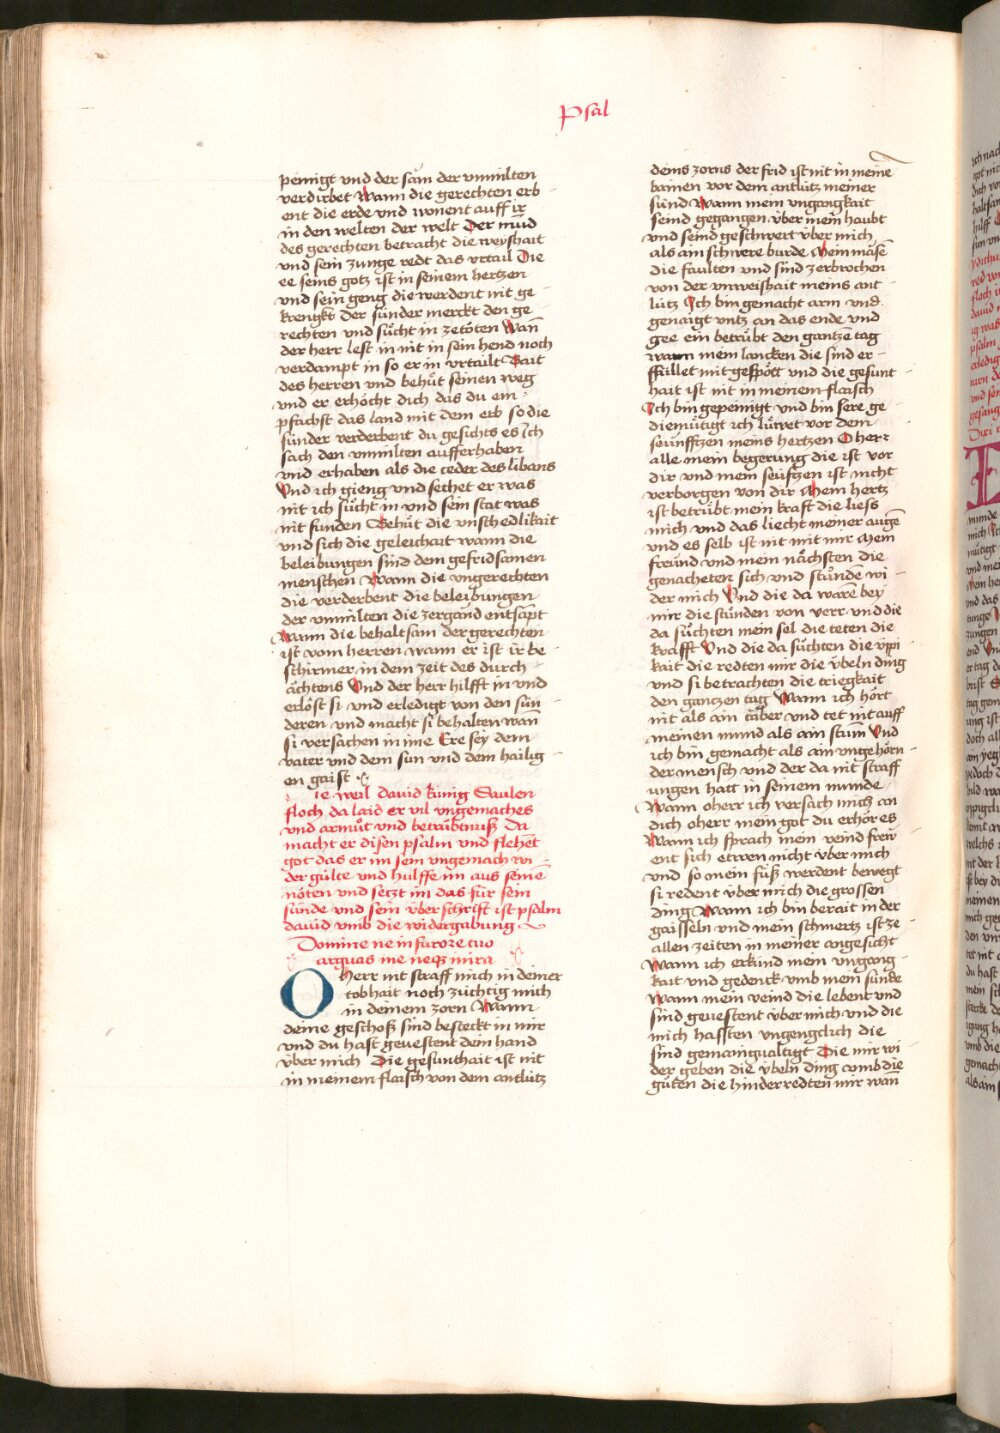 Psal
peinigt vnd der sam der vnmilten
verdirbet Wann die gerechten erb
ent die erde vnd wonent auff ir
in den welten der welt Der mud
des gerechten betracht die weyshait
vnd sein zunge redt das vrtail Die
ee seins gotz ist in seinem hertzen
vnd sein geng die werdent nit ge
krengkt der sunder merckt den ge
rechten vnd sücht in zetöten Wañ
der herr lest in nit in sein hend noch
verdampt in so er in vrtailt Bait
des herren vnd behüt seinen weg
vnd er erhöcht dich das du em
pfachst das land mit dem erb so die
sünder verderbent du gesichts es Ich
sach den vnmilten aufferhaben
vnd erhaben als die ceder des libans
Vnd ich gieng vnd sechet er was
nit ich sücht in vnd sein stat was
nit funden Behüt die vnschedlikait
vnd sich die geleichait wann die
beleibungen sind dem gefridsamen
menschen Wann die vngerechten
die verderbent die beleibungen
der vnmilten die zergand entsapt
Wann die behaltsam der gerechten
ist vom herren wann er ist ir be
schirmer in dem zeit des durch
ächtens Vnd der herr hilfft in vnd
erlöst si vnd erledigt von den sün
deren vnd macht si behalten wañ
si versachen in ime Ere sey dem
vater vnd dem sun vnd dem hailig
en gaist
ie weil dauid künig Saulen
floch da laid er vil vngemaches
vnd armüt vnd betrübtnuß Da
macht er disen psalm vnd flehet
got das er im sein vngemach wi
der gülte vnd hulffe im aus seine
nöten vnd setzt im das für sein
sünde vnd sein überschrift ist psalm
dauid vmb die widergabung
Domine ne in furore tuo
arguas me neqz in ira
O herr nit straff mich in deiner
tobhait noch züchtig mich
in deinem zorn Wann
deine geschoß sind besteckt in mir
vnd du hast geuestent dein hand
über mich Die gesunthait ist nit
in meinem flaisch von dem antlütz
deins zorns der frid ist nit in meine
bainen vor dem antlütz meiner
sünd Wann mein vngangkait
seind gegangen über mein haubt
vnd seind geschwert über mich
als ain schwere burde Mein mäsen
die faulten vnd sind zerbrochen
von der vnweishait meins ant
lütz Ich bin gemacht arm vnd
genaigt vntz an das ende vnd
gee ein betrübt den gantze tag
wann mein lancken die sind er
füllet mit gespött vnd die gesunt
hait ist nit in meinem flaisch
Ich bin gepeinigt vnd bin sere ge
diemütigt ich lüwet vor dem
seünfftzen meins hertzen O herr
alle mein begerung die ist vor
dir vnd mein seüftzen ist nicht
verborgen von dir Mein hertz
ist betrübt mein kraft die liess
mich vnd das liecht meiner auge
vnd es selb ist nit mit mir Mein
freünd vnd mein nächsten die
genacheten sich vnd stünden wi
der mich Vnd die da ware bey
mir die stünden von verr vnd die
da süchten mein sel die teten die
krafft Vnd die da süchten die üppi
kait die redten mir die übeln ding
vnd si betrachten die triegkait
den gantzen tag Wann ich hört
nit als ain täber vnd tet nit auff
meinen mund als ain stum Vnd
ich bin gemacht als ain vngehörn
der mensch vnd der da nit straff
ungen hatt in seinem munde
Wann o herr ich versach mich an
dich o herr mein got du erhöres
Wann ich sprach mein veind frew
ent sich etwen nicht über mich
vnd so mein füß werdent bewegt
si redent über mich die grossen
ding Wann ich bin berait in der
gaisseln vnd mein schmertz ist ze
allen zeiten in meiner angesicht
Wann ich erkünd mein vngang
kait vnd gedenck vmb mein sünde
Wann mein veind die lebent vnd
sind geuestent über mich vnd die
mich hassten vngengclich die
sind gemainguältigt Die mir wi
der geben die übeln ding vmb die
güten die hinderredten mir wañ